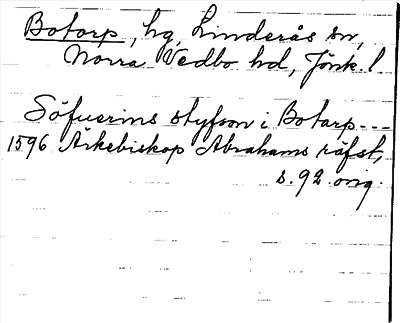 Botorp, hg, Linderås sn,
Norra Vedbo hd, Jönk. l
Söfuerins styfson i Botarp ---
1596 Ärkebiskop Abrahams räfst,
s. 92 orig.